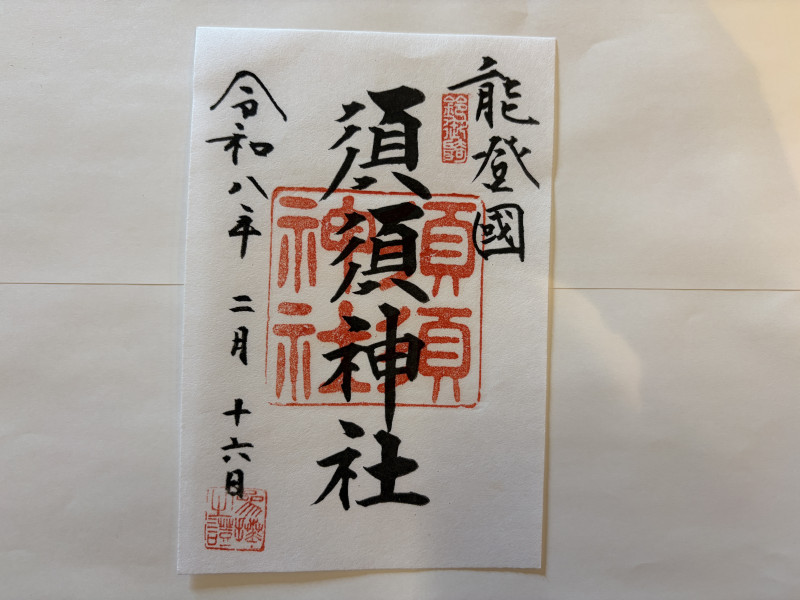 能登國
須須神社
須須神社
令和八年 二月 十六日